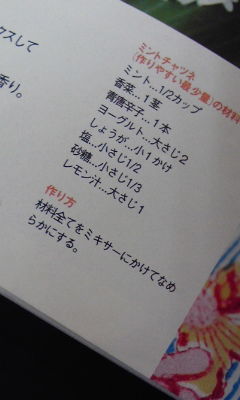 クスして
香り。
ミントチャツネ
(作りやすい最少量)の材料
ミント…1/2カップ
香菜…1茎
青唐辛子…1本
ヨーグルト…大さじ2
しょうが…小1かけ
塩…小さじ1/2
砂糖…小さじ1/3
レモン汁…大さじ1
作り方
材料全てをミキサーにかけてなめ
らかにする。